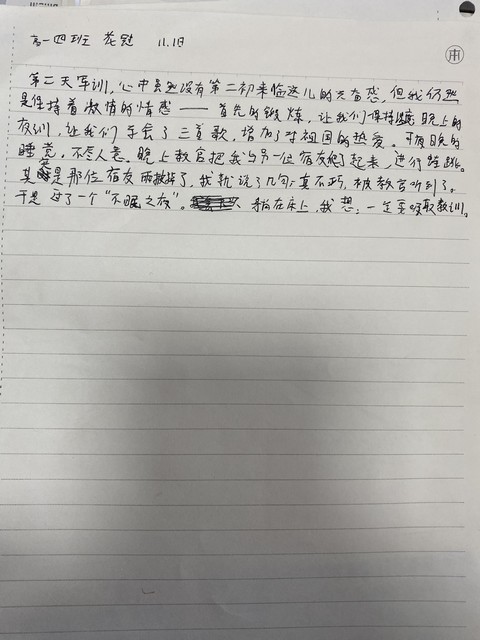 高一四班 花冠 11.1日
第二天军训,心中虽然没有第二初来临这儿的兴奋感,但我仍然
是保持着激情的情感——首先的锻炼,让我们保持 晚上的
夜训,让我们学会了三首歌,增加了对祖国的热爱。可有日晚的
睡觉,不尽人意。晚上教官把我与另一位宿友爬起来,进行蹲跳。
其实是那位宿友 了,我就说了几句;真不巧,被教官听到了。
于是过了一个“不眠之夜”。 躺在床上,我想:一定要吸取教训。